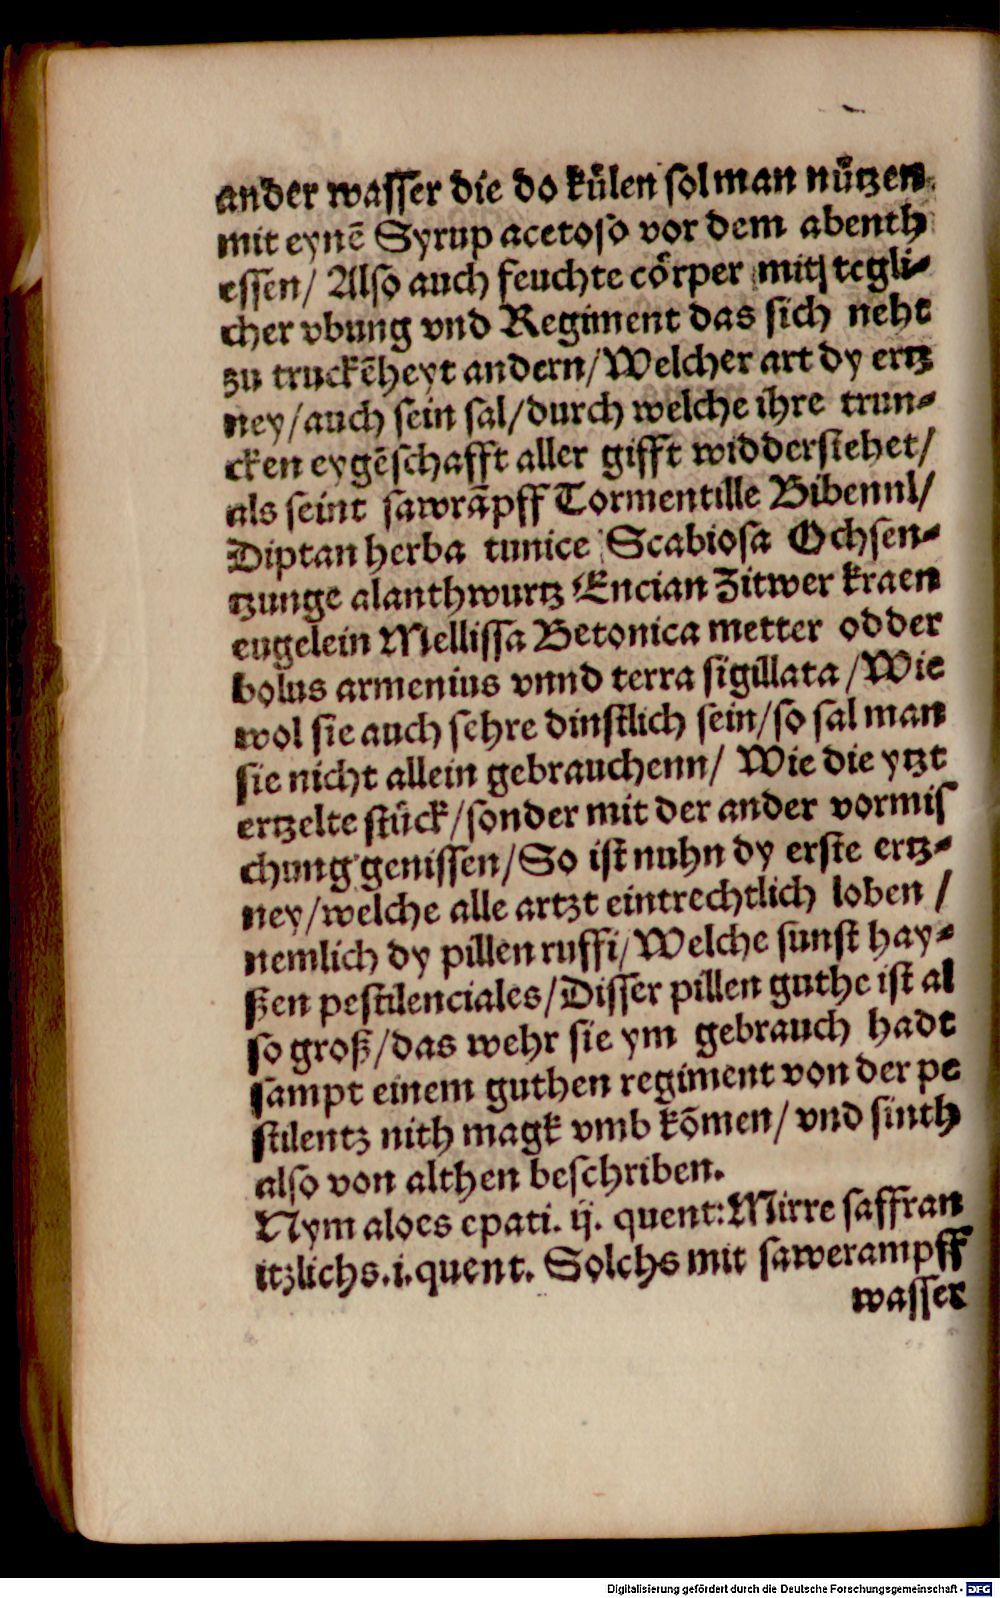 ander wasser die do kuͤlen sol man nuͤtzen
mit eynē Syrup acetoso vor dem abenth
essen/ Also auch feuchte coͤrper mit tegli⸗
cher vbung vnd Regiment das sich nehe
zu truckēheyt andern/Welcher art dy ertz
ney/auch sein sal/durch welche ihre trun⸗
cken eygēschafft aller gifft widderstehet/
als seint sawrāpff Tormentille Bibennl/
Diptan herba tunice Scabiosa Ochsen⸗
tzunge alanthwurtz Encian Zitwer kraen
eugelein Mellissa Betonica metter odder
bolus armenius vnnd terra sigillata /Wie
wol sie auch sehre dinstlich sein/so sal man
sie nicht allein gebrauchenn/ Wie die ytzt
ertzelte stuͤck/sonder mit der ander vormis
chung genissen/So ist nuhn dy erste ertz⸗
ney/welche alle artzt eintrechtlich loben /
nemlich dy pillen ruffi/Welche sunst hay⸗
ßen pestilenciales/Disser pillen guthe ist al
so groß/das wehr sie ym gebrauch hadt
sampt einem guthen regiment von der pe
stilentz nith magk vmb kōmen/ vnd sinth
also von althen beschriben.
Nym aloes epati. ij. quent:Mirre saffran
itzlichs.i.quent. Solchs mit sawerampff
wasser
Digitalisierung gefördert durch die Deutsche Forschungsgemeinschaft - DFG